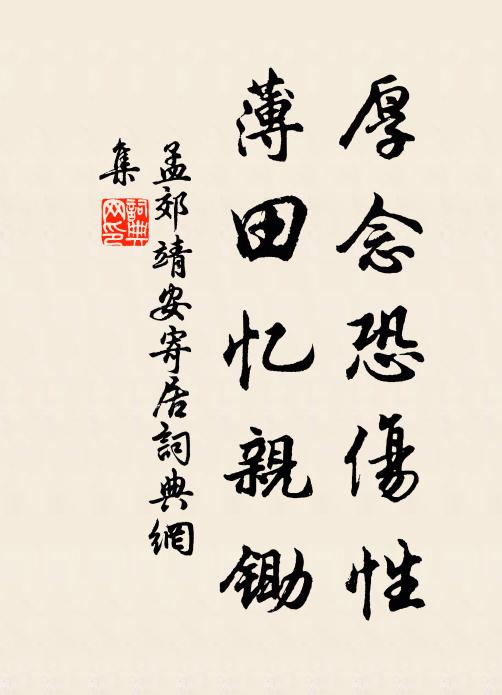 厚念恐傷性
薄田忆親鋤
孟郊靖安寄居詞典網
集
詞典网印